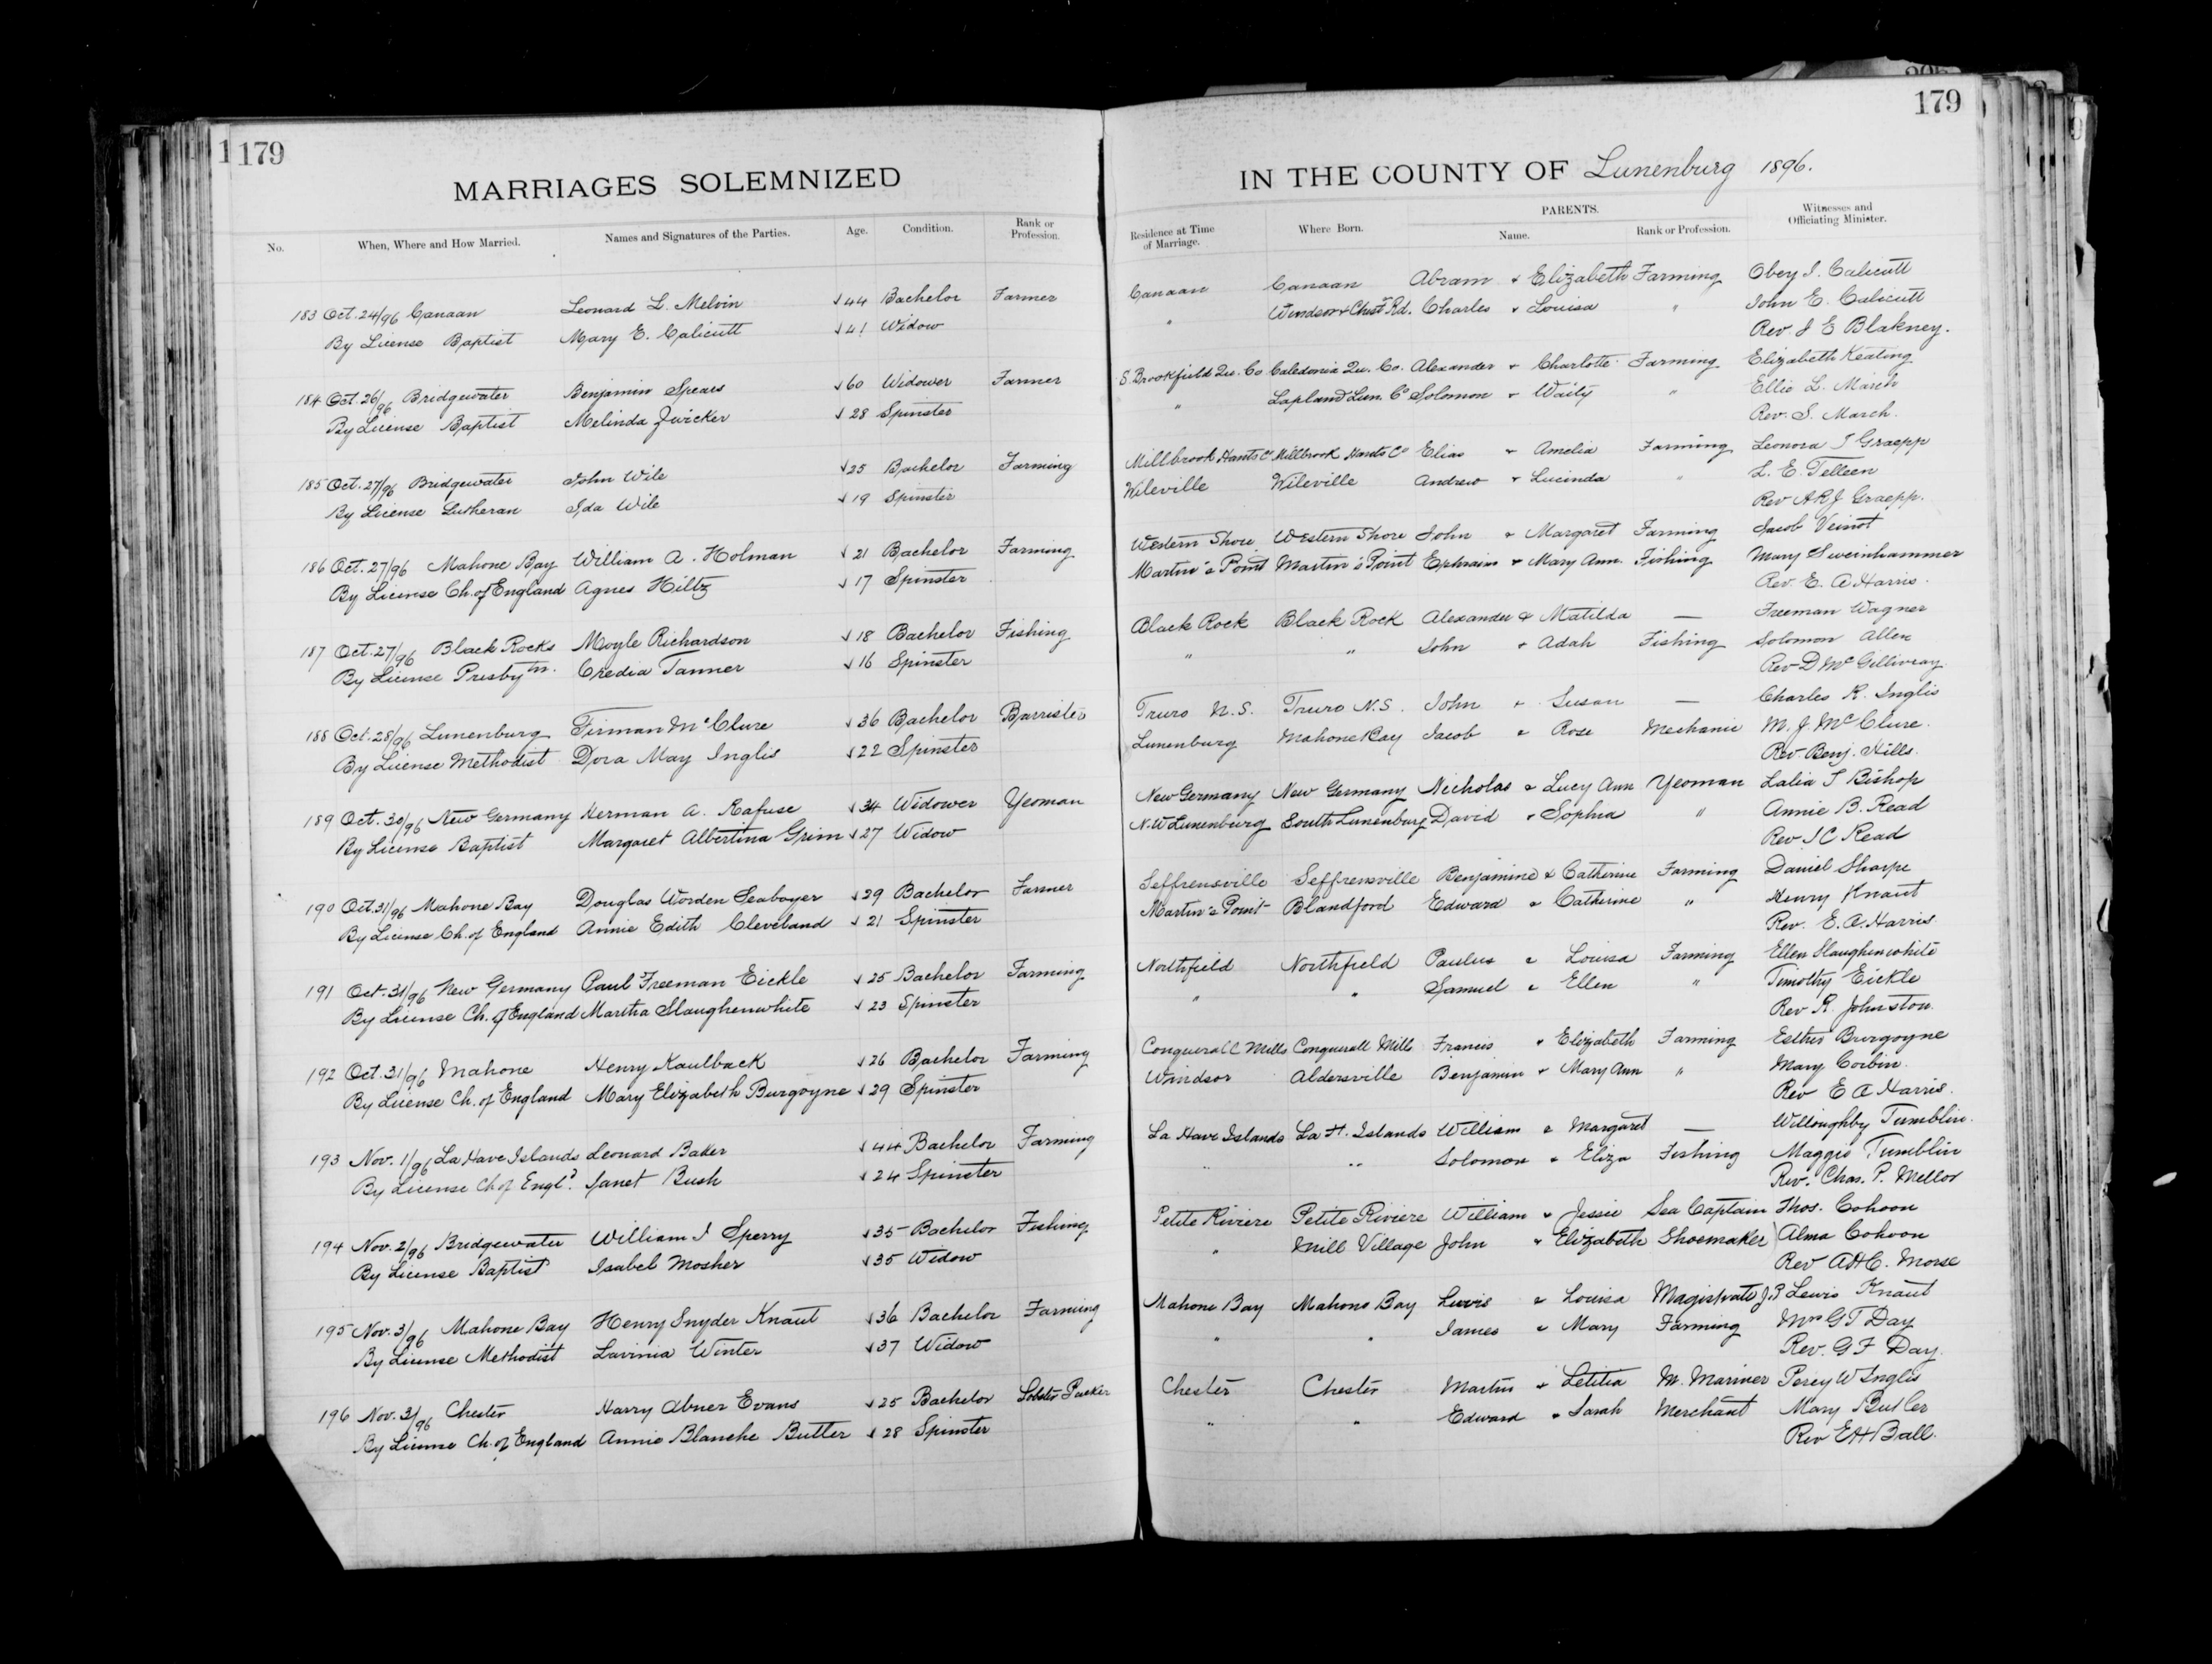 179
MARRIAGES SOLEMNIZED
No. When, Where and How Married. Names and Signatures of the Parties. Age. Condition. Rank or Profession.
183 Oct. 24/96 Canaan Leonard L. Melvin √44 Bachelor Farmer
By License Baptist Mary E. Calicutt √41 Widow
184 Oct. 26/96 Bridgewater Benjamin Spears √60 Widower Farmer
By License Baptist Melinda Zwicker √28 Spinster
185 Oct. 27/96 Bridgewater John Wile √25 Bachelor Farming
By License Lutheran Ida Wile √19 Spinster
186 Oct. 27/96 Mahone Bay William A. Holman √21 Bachelor Farming
By License Ch. of England Agnes Hiltz √17 Spinster
187 Oct. 27/96 Black Rocks Moyle Richardson √18 Bachelor Fishing
By License Presbytn. Credia Tanner √16 Spinster
188 Oct. 28/96 Lunenburg Firman McClure √36 Bachelor Barrister
By License Methodist Dora May Inglis √22 Spinster
189 Oct. 30/96 New Germany Herman A. Rafuse √34 Widower Yeoman
By License Baptist Margaret Albertina Grim √27 Widow
190 Oct. 31/96 Mahone Bay Douglas Worden Seaboyer √29 Bachelor Farmer
By License Ch. of England Annie Edith Cleveland √21 Spinster
191 Oct. 31/96 New Germany Paul Freeman Eickle √25 Bachelor Farming
By License Ch. of England Martha Slaughenwhite √23 Spinster
192 Oct. 31/96 Mahone Henry Kaulback √26 Bachelor Farming
By License Ch. of England Mary Elizabeth Burgoyne √29 Spinster
193 Nov. 1/96 La Have Islands Leonard Baker √44 Bachelor Farming
By License Ch of Engld. Janet Bush √24 Spinster
194 Nov. 2/96 Bridgewater William I Sperry √35 Bachelor Fishing
By License Baptist Isabel Mosher √35 Widow
195 Nov. 3/96 Mahone Bay Henry Snyder Knaut √36 Bachelor Farming
By License Methodist Lavinia Winter √37 Widow
196 Nov. 3/96 Chester Harry Abner Evans √25 Bachelor Lobster Packer
By License Ch. of England Annie Blanche Butler √28 Spinster
179
IN THE COUNTY OF Lunenburg 1896.
Residence at Time of Marriage. Where Born. PARENTS. Name. Rank or Profession. Witnesses and Officiating Minister.
Canaan Canaan Abram & Elizabeth Farming Obey I. Calicutt
" Windsor & Chestr Rd. Charles & Louisa " John E. Calicutt
Rev J E Blakney.
S. Brookfield Qu. Co Caledonia Qu. Co. Alexander & Charlotte Farming Elizabeth Keating
" Lapland Lun. Co Solomon & Waity " Ellie L. March
Rev. S. March.
Millbrook Hants Co Millbrook Hants Co Elias & Amelia Farming Leonora J Graepp
Wileville Wileville Andrew & Lucinda " L. E. Telleen
Rev A R J Graepp.
Western Shore Western Shore John & Margaret Farming Jacob Veinot
Martin's Point Martin's Point Ephraim & Mary Ann. Fishing Mary Sweinhammer
Rev. E. A Harris.
Black Rock Black Rock Alexander & Matilda — Freeman Wagner
" " John & Adah Fishing Solomon Allen
Rev D McGillivray.
Truro N.S. Truro N.S. John & Susan — Charles R. Inglis
Lunenburg Mahone Bay Jacob & Rose Mechanic M. J. McClure.
Rev. Benj. Hills.
New Germany New Germany Nicholas & Lucy Ann Yeoman Lalia T Bishop
N.W Lunenburg South Lunenburg David & Sophia " Annie B. Read
Rev I C Read
Seffrensville Seffrensville Benjamine & Catherine Farming Daniel Sharpe
Martin's Point Blandford Edward & Catherine " Henry Knaut
Rev. E. A. Harris
Northfield Northfield Paulus & Louisa Farming Ellen Slaughenwhite
" " Samuel & Ellen " Timothy Eickle
Rev R. Johnston.
Conquerall Mills Conquerall Mills Francis & Elizabeth Farming Esther Burgoyne
Windsor Aldersville Benjamin & Mary Ann " Mary Corbin.
Rev E A Harris.
La Have Islands La H. Islands William & Margaret — Willoughby Tumblin.
" " Solomon & Eliza Fishing Maggie Tumblin
Rev. Chas. P. Mellor
Petite Riviere Petite Riviere William & Jessie Sea Captain Thos. Cohoon
" Mill Village John & Elizabeth Shoemaker Alma Cohoon
Rev A H C. Morse
Mahone Bay Mahone Bay Lewis & Louisa Magistrate J.P Lewis Knaut
" " James & Mary Farming Mrs G T Day
Rev. G F Day.
Chester Chester Martin & Letitia M. Mariner Percy W Inglis
" " Edward & Sarah Merchant Mary Butler
Rev E H Ball.